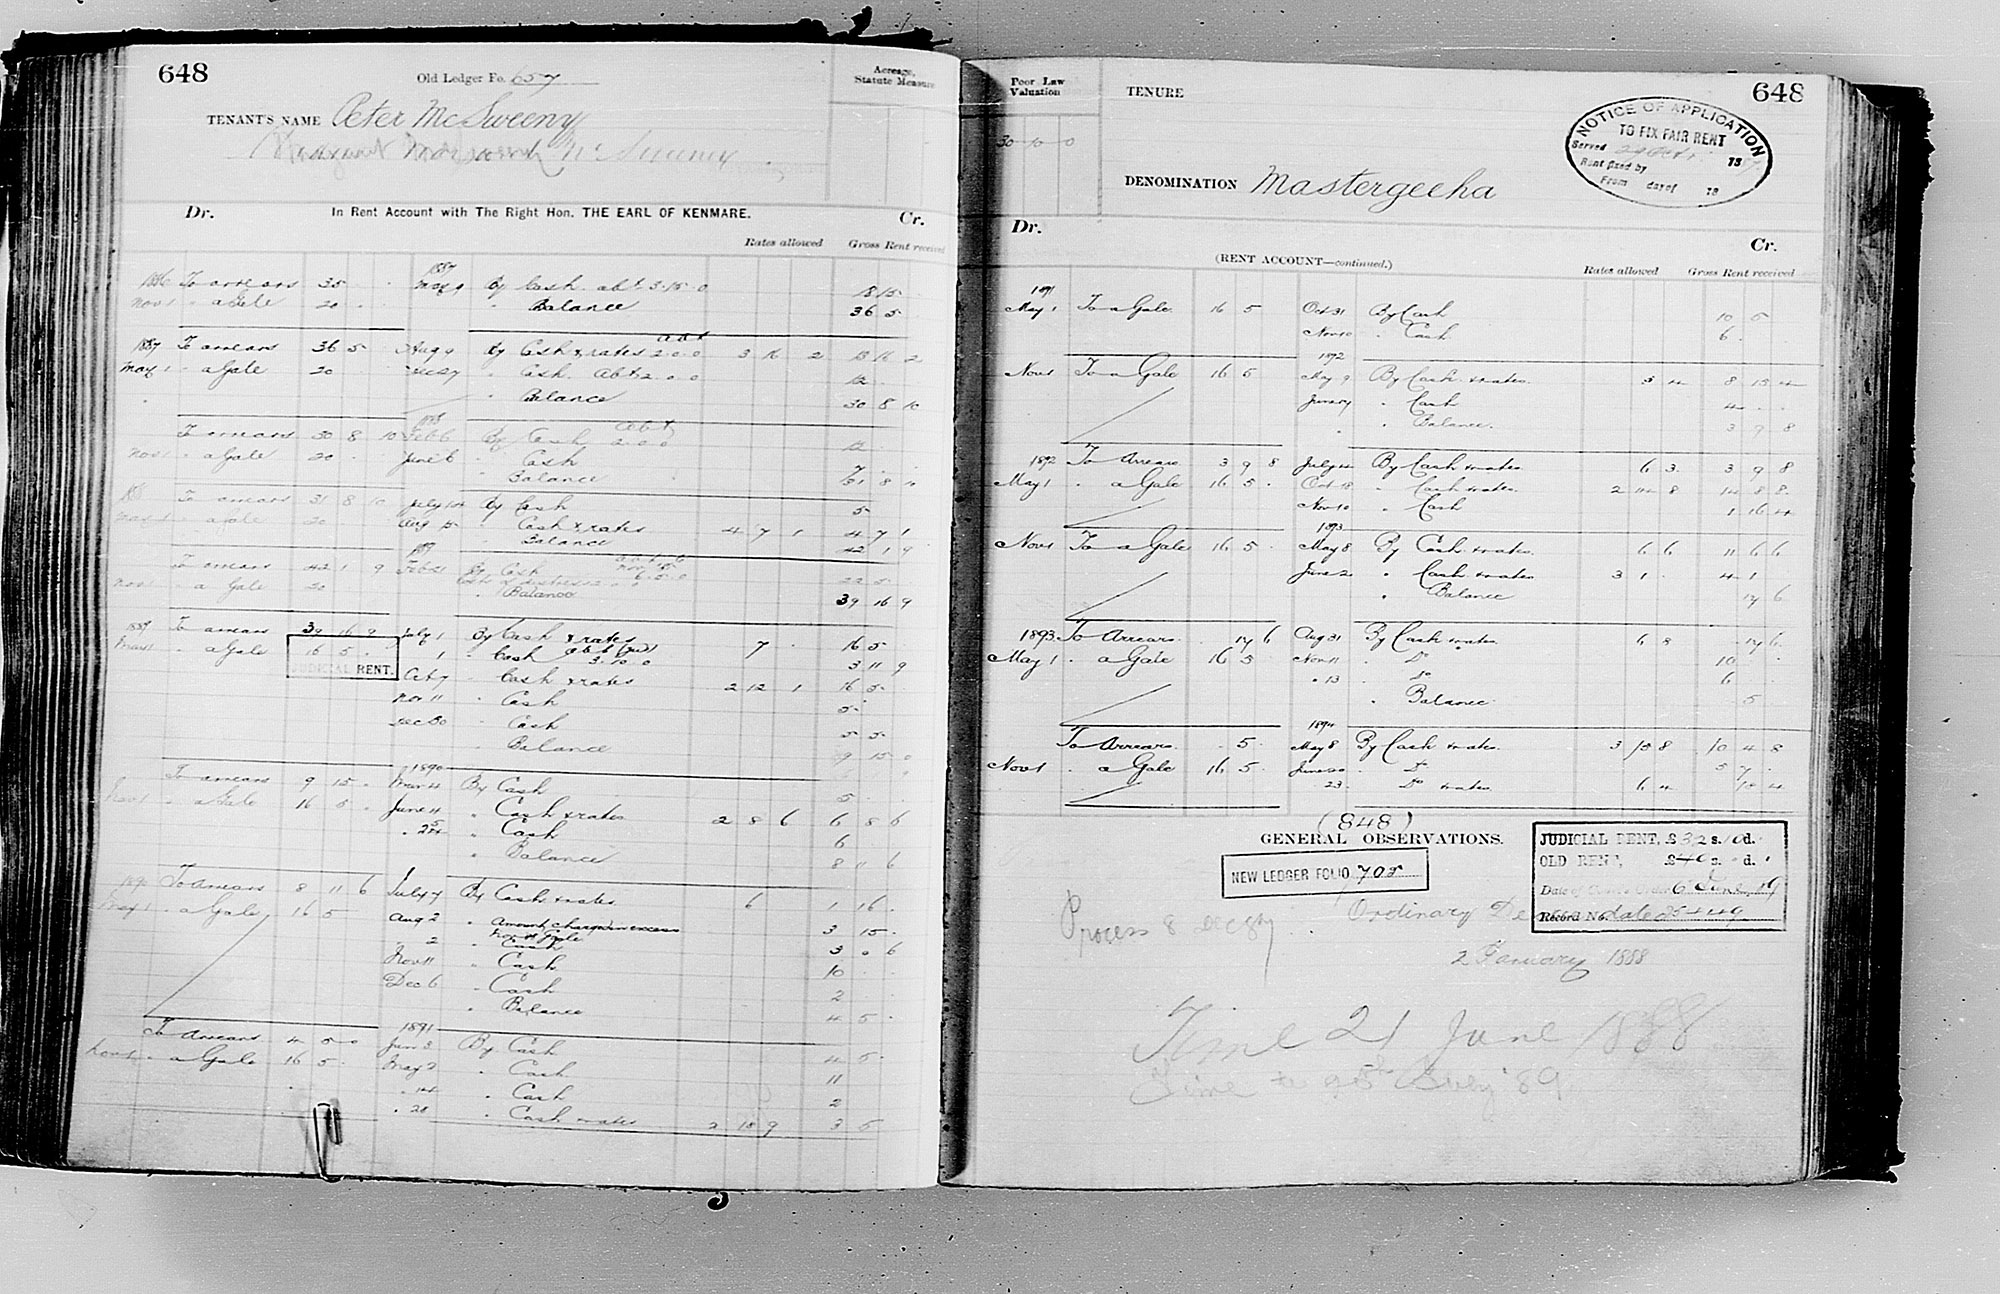 648
Old Ledger Fo. 657
Acreage, Statute Measure
TENANT'S NAME Peter McSweeny
Margaret McSweeney
Dr. In Rent Account with The Right Hon. THE EARL OF KENMARE. Cr.
Rates allowed Gross Rent received
1886 To arrears 35 1887 May 9 By Cash abt. 3.15.0 18 15
Nov 1 " a Gale 20 " Balance 36 5
1887 To arrears 36 5 Aug 9 By Cash & rates abt 2.0.0 3 16 2 13 16 2
May 1 " a Gale 20 Dec 27 " Cash abt. 2.0.0 12
" Balance 30 8 10
1888
To arrears 30 8 10 Feb 6 By Cash abt 2.0.0 12
Nov 1 " a Gale 20 June 6 " Cash 7
" Balance 31 8 10
1888 To arrears 31 8 10 July 14 By Cash 5
May 1 " a Gale 20 Aug 15 " Cash & rates 4 7 1 4 7 1
" Balance 42 1 9
1889
To arrears 42 1 9 Feb 21 By Cash 22 5
Nov 1 " a Gale 20
" Balance 39 16 9
1889 To arrears 39 16 9 July 1 By Cash & rates 7 16 5
May 1 " a Gale 16 5 1 " Cash abt 3.10.0 3 11 9
JUDICIAL RENT.
Oct 7 " Cash & rates 2 12 1 16 5
Nov 11 " Cash 5
Dec 30 " Cash 5 5
" Balance 9 15 0
1890
To arrears 9 15 Mar 4 By Cash 5
Nov 1 " a Gale 16 5 June 4 " Cash & rates 2 8 6 6 8 6
" Cash 6
" Balance 8 11 6
1890 To arrears 8 11 6 July 7 By Cash & rates 6 1 16
May 1 " a Gale 16 5 Aug 2 " Amount charged in excess 3 15
Nov Gale
2 " Cash 3 0 6
Nov 11 " Cash 10
Dec 6 " Cash 2
" Balance 4 5
1891
To Arrears 4 5 0 Jan 3 By Cash 4 5
Nov 1 " a Gale 16 5 May 2 " Cash 11
" 14 " Cash 2
" 28 " Cash & rates 2 18 9 3 5
Poor Law Valuation
30 10 0
TENURE
648
NOTICE OF APPLICATION
TO FIX FAIR RENT
Served 29 Oct. 1887
Rent fixed by
From day of 18
DENOMINATION Mastergeeha
Dr. Cr.
(RENT ACCOUNT—continued.)
Rates allowed Gross Rent received
1891
May 1 To a Gale 16 5 Oct 31 By Cash 10 5
Nov 10 " Cash 6
1892
Nov 1 To a Gale 16 5 May 9 By Cash & rates 3 4 8 15 4
June 27 " Cash 4
" Balance 3 9 8
1892 To Arrears 3 9 8 July 4 By Cash & rates 6 3 3 9 8
May 1 " a Gale 16 5 Oct 18 " Cash & rates 2 14 8 14 8 8
Nov 10 " Cash 1 16 4
1893
Nov 1 To a Gale 16 5 May 8 By Cash & rates 6 6 11 6 6
June 2 " Cash & rates 3 1 4 1
" Balance 17 6
1893 To Arrears 17 6 Aug 31 By Cash & rates 6 8 17 6
May 1 " a Gale 16 5 Nov 11 " Do 10
" 13 " Do 6
" Balance 5
1894
To Arrears 5 May 8 By Cash & rates 3 18 8 10 4 8
Nov 1 " a Gale 16 5 June 20 " Do 5 7
23 " Do & rates 6 4 18 4
(848)
GENERAL OBSERVATIONS.
NEW LEDGER FOLIO 705
JUDICIAL RENT, £32 s.10 d.
OLD RENT, £40 s. d.
Date of Court's Order 6 June 89
Record No.
Process 8 Dec 87
Ordinary Decree dated
2 January 1888
Time 21 June 1888
Time to 25th July '89